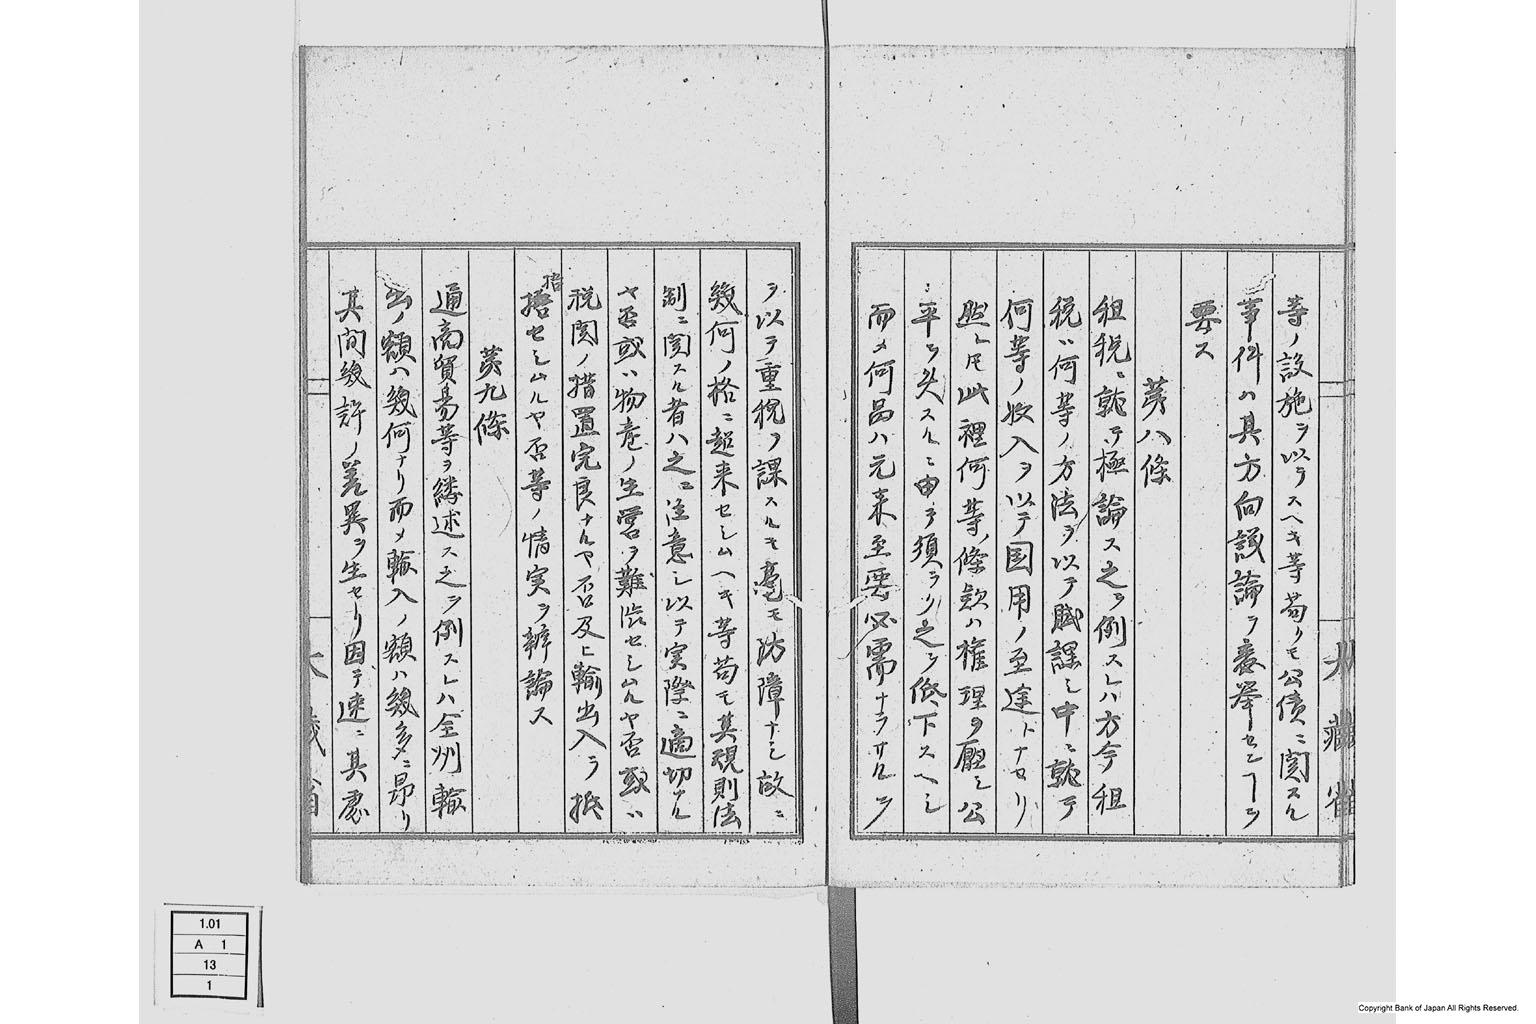 等ノ設施ヲ以テスヘキ等苟リモ公債ニ関スル
事件ハ其方向議論ヲ登挙センヿヲ
要ス
第八條
租税ニ就テ極論ス之ヲ例スレハ方今租
税ハ何等ノ方法ヲ以テ賦課シ中ニ就テ
何等ノ收入ヲ以テ国用ノ至途トナセリ
然レ𪜈此裡何等ノ條款ハ権理ヲ壓シ公
平ヲ失スルニ由テ須ラク之ヲ低下スヘシ
而〆何品ハ元来至要必需ナラサルヲ
ヲ以テ重税ヲ課スルモ毫モ防障ナシ故ニ
幾何ノ格ニ超来セシムヘキ等苟モ其規則法
制ニ関スル者ハ之ニ注意シ以テ実際ニ適切ナル
ヤ否或ハ物産ノ生営ヲ難渋セシムルヤ否或ハ
税関ノ措置完良ナルヤ否及ヒ輸出入ヲ抵
措セシムルヤ否等ノ情実ヲ辨論ス
第九條
通商貿易等ヲ縷述ス之ヲ例スレハ全州輸
出ノ額ハ幾何ナリ而〆輸入ノ額ハ幾多ニ昂リ
其間幾許ノ差異ヲ生セリ因テ速ニ其
大藏省
大藏省
1.01
A 1
13
1
Copyright Bank of Japan All Rights Reserved.